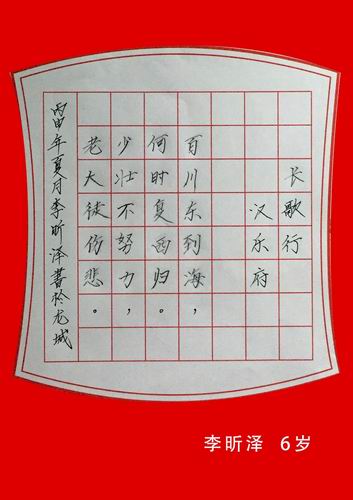 长歌行
汉乐府
百川东到海，
何时复西归。
少壮不努力，
老大徒伤悲。
丙申年夏月李昕泽書於龙城
李昕泽 6岁